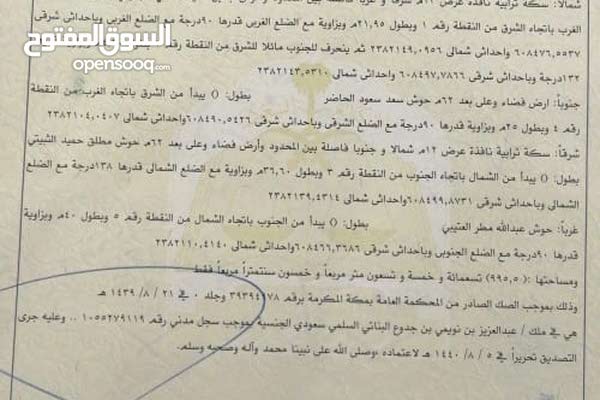 شمالا: سكة ترابية نافذة عرض ١٢م شرقا و غربا
السوق المفتوح
opensooq.com
الغرب باتجاه الشرق من النقطة رقم ١ وبطول ٢١,٩٥م وبزاوية مع الضلع الغربي قدرها ٩٠درجة وباحداثى شرقى
٦٠٨٤٧٦,٥٥٣٧ واحداثى شمالى ٢٣٨٢١٤٩,٠٩٥٦ ثم ينحرف للجنوب مائلا للشرق من النقطة
١٣٢درجة وباحداثى شرقى ٦٠٨٤٩٧,٧٨٦٦ واحداثى شمالى ٢٣٨٢١٤٣,٥٣١٠
جنوبا: ارض فضاء وعلى بعد ٦٢م حوش سعد سعود الحاضر بطول: () يبدأ من الشرق باتجاه الغرب من النقطة
رقم ٤ وبطول ٢٥م وبزاوية قدرها ٩٠درجة مع الضلع الشرقى وباحداثى شرقى ٦٠٨٤٩٠,٥٤٢٦واحداثى شمالى ٢٣٨٢١٠٤,٠٤٠٧
شرقا: سكة ترابية نافذة عرض ١٢م شمالا و جنوبا فاصلة بين المحدود وأرض فضاء وعلى بعد ٦٢م حوش مطلق حميد الثبيتي
بطول: () يبدأ من الشمال باتجاه الجنوب من النقطة رقم ٣ وبطول ٣٦,٦٠م وبزاوية مع الضلع الشمالى قدرها ١٣٨درجة مع الضلع
الشمالى وباحداثى شرقى ٦٠٨٤٩٩,٨٧٣١واحداثى شمالى ٢٣٨٢١٣٩,٤٣١٤
غربا: حوش عبدالله مطر العتيبي بطول: () يبدأ من الجنوب باتجاه الشمال من النقطة رقم ٥ وبطول ٤٠م وبزاوية
قدرها ٩٠درجة مع الضلع الجنوبى وباحداثى شرقى ٦٠٨٤٦٦,٣٦٨٦واحداثى شمالى ٢٣٨٢١١٠,٤١٤٠
ومساحتها :(٩٩٥,٥) تسعمائة و خمسة و تسعون متر مربعاً و خمسون سنتمتراً مربعاً فقط
وذلك بموجب الصك الصادر من المحكمة العامة بمكة المكرمة برقم ٣٩٣٩٤ ٧٨ وجلد ٠ في ٢١ / ٨/ ١٤٣٩ هـ
هي في ملك / عبدالعزيز بن نويمي بن جدوع البناتي السلمي سعودي الجنسية بموجب سجل مدني رقم ١٠٥٥٢٧٩١١٩ .. وعليه جرى
التصديق تحريراً في ٥ / ٨/ ١٤٤٠ هـ لاعتماده ,وصلى الله على نبينا محمد وآله وصحبه وسلم.